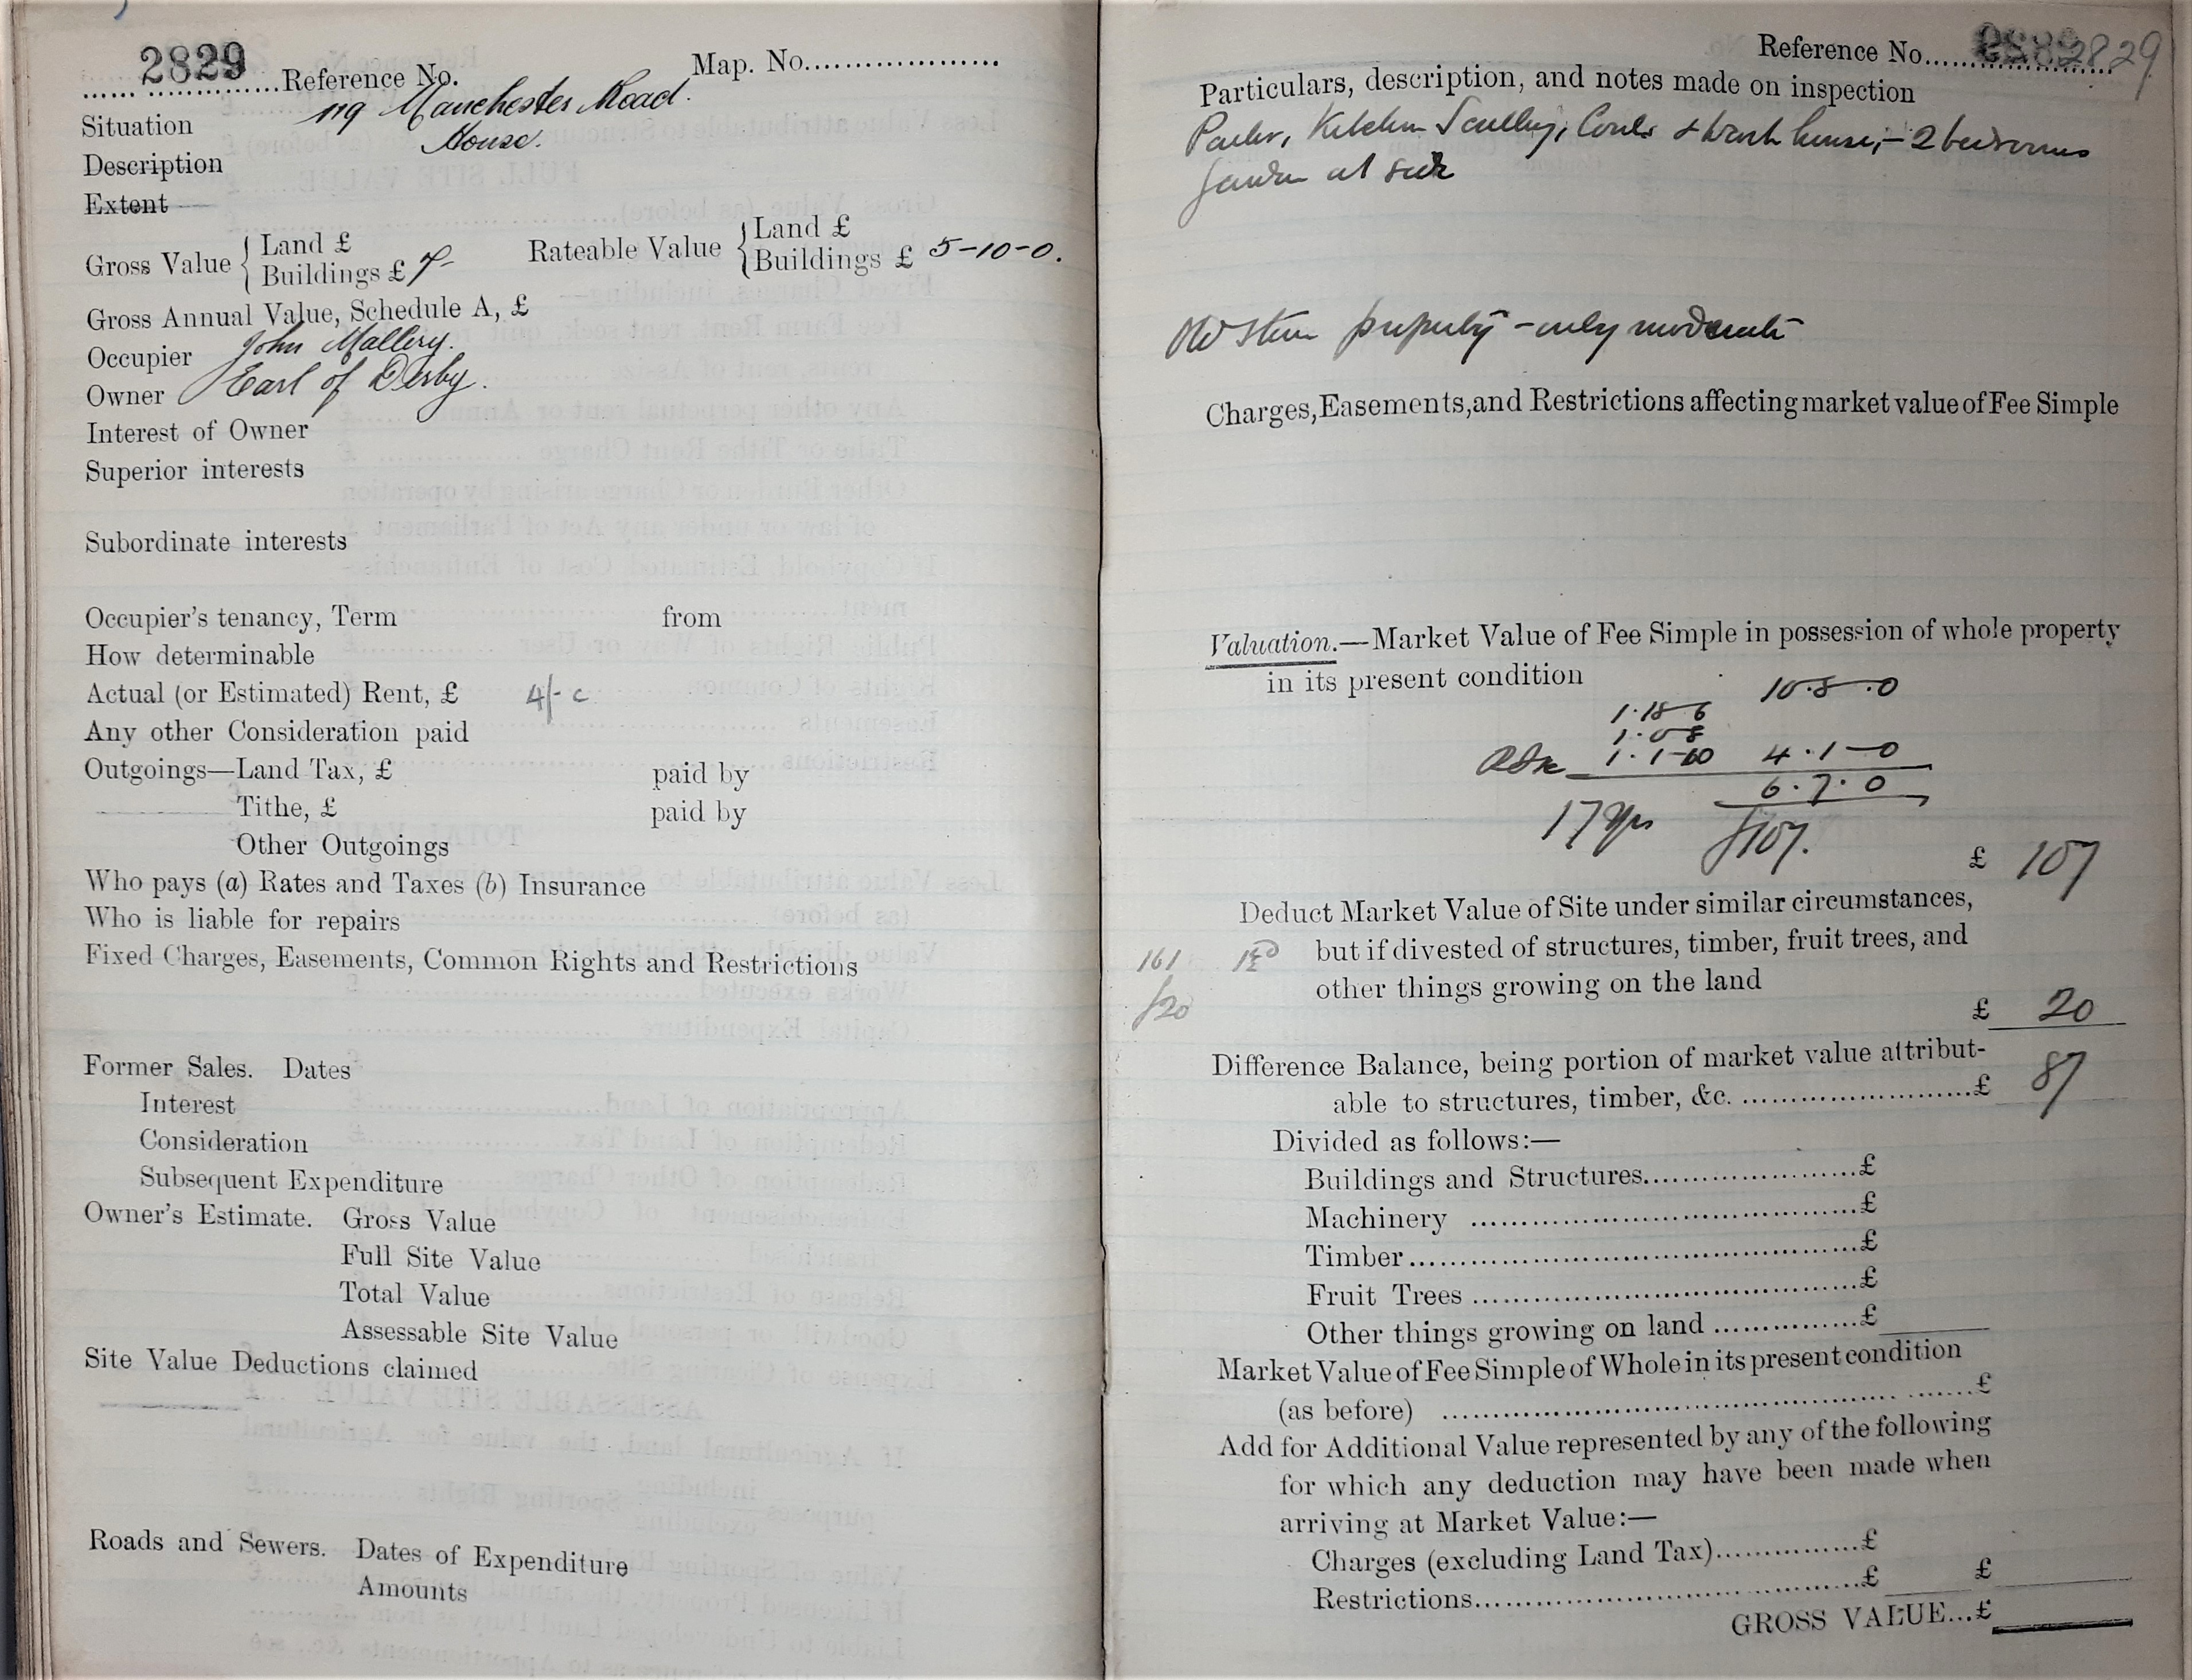 2829
Reference No. Map. No.
Situation 119 Manchester Road.
Description House.
Extent
Gross Value { Land £
Buildings £ 7- Rateable Value { Land £
Buildings £ 5-10-0.
Gross Annual Value, Schedule A, £
Occupier John Mallery.
Owner Earl of Derby.
Interest of Owner
Superior interests
Subordinate interests
Occupier's tenancy, Term from
How determinable
Actual (or Estimated) Rent, £ 4/- c
Any other Consideration paid
Outgoings—Land Tax, £ paid by
Tithe, £ paid by
Other Outgoings
Who pays (a) Rates and Taxes (b) Insurance
Who is liable for repairs
Fixed Charges, Easements, Common Rights and Restrictions
Former Sales. Dates
Interest
Consideration
Subsequent Expenditure
Owner's Estimate. Gross Value
Full Site Value
Total Value
Assessable Site Value
Site Value Deductions claimed
Roads and Sewers. Dates of Expenditure
Amounts
Reference No. 2829
Particulars, description, and notes made on inspection
Parlor, Kitchen Scullery, Coals & Wash house,- 2 bedrooms
Garden at side
Old Stone property - only moderate
Charges, Easements, and Restrictions affecting market value of Fee Simple
Valuation.—Market Value of Fee Simple in possession of whole property
in its present condition
10.8.0
1.18-6
1.0-8
1.1-10 4.1-0
6.7.0
17 Yrs £107.
£ 107
Deduct Market Value of Site under similar circumstances,
161 but if divested of structures, timber, fruit trees, and
£20 other things growing on the land
£ 20
Difference Balance, being portion of market value attribut-
able to structures, timber, &c. £ 87
Divided as follows:—
Buildings and Structures £
Machinery £
Timber £
Fruit Trees £
Other things growing on land £
Market Value of Fee Simple of Whole in its present condition
(as before) £
Add for Additional Value represented by any of the following
for which any deduction may have been made when
arriving at Market Value:—
Charges (excluding Land Tax) £
Restrictions £ £
GROSS VALUE...£